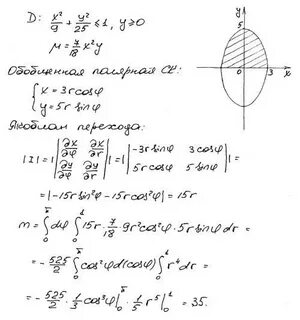 D: x²/9 + y²/25 ≤ 1, y ≥ 0
μ = 7/18 x²y
Обобщенная полярная СК:
{ x = 3r cosφ
{ y = 5r sinφ
Якобиан перехода:
|I| = | |∂x/∂φ ∂x/∂r; ∂y/∂φ ∂y/∂r| | = | |-3r sinφ 3cosφ; 5r cosφ 5 sinφ| | =
= |-15r sin²φ - 15r cos²φ| = 15r
m = ∫₀^π dφ ∫₀¹ 15r · 7/18 · 9r² cos²φ · 5r sinφ dr =
= - 525/2 ∫₀^π cos²φ d(cosφ) ∫₀¹ r⁴ dr =
= - 525/2 · 1/3 cos³φ |₀^π · 1/5 r⁵ |₀¹ = 35.
y
5
0
3
x